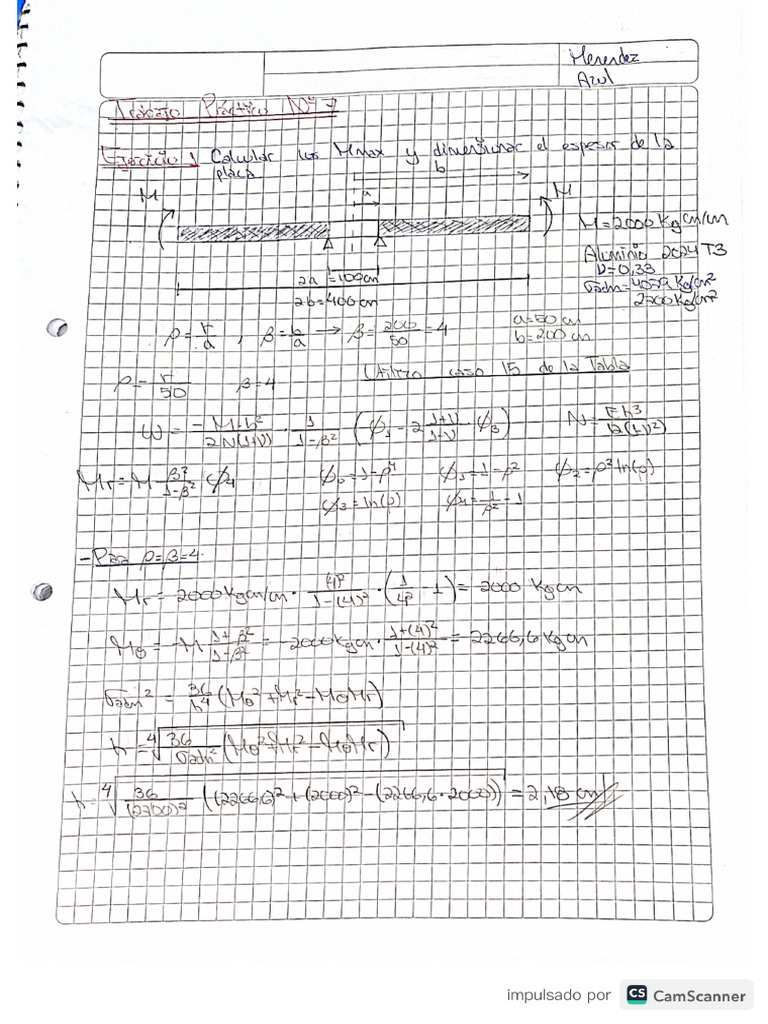 Menendez
Azul
Trabajo Práctico N° 7
Ejercicio 1 Calcular los Mmax y dimensionar el espesor de la
placa
b
a
M
M
M=2000 Kg cm/cm
Aluminio 2024 T3
ν=0,33
σadm=4079 Kg/cm²
2700 Kg/cm²
2a=100cm
2b=400cm
ρ=r/a , β=b/a → β=200/50=4
a=50 cm
b=200 cm
ρ=r/50 β=4
Utilizo caso 15 de la Tabla
ω = -M·a²/2N(1+ν) · 1/1-β² (φ₁ - 2 1+ν/1-ν φ₃)
N=Eh³/12(1-ν²)
Mr = M β²/1-β² φ₄
φ₀=1-ρ⁴ φ₁=1-ρ² φ₂=ρ²ln(ρ)
φ₃=ln(ρ) φ₄=1/ρ²-1
-Para ρ=β=4.
Mr = 2000 Kgcm/cm · (4)²/1-(4)² · (1/4² -1) = 2000 Kgcm
Mθ = -M 1+β²/1-β² = -2000Kgcm · 1+(4)²/1-(4)² = 2266,6 Kgcm
σadm² = 36/h⁴ (Mθ²+Mr²-MθMr)
h = ⁴√36/σadm² (Mθ²+Mr²-MθMr)
h = ⁴√36/(2700)² ((2266,6)²+(2000)²-(2266,6·2000)) = 2,18 cm
impulsado por CS CamScanner